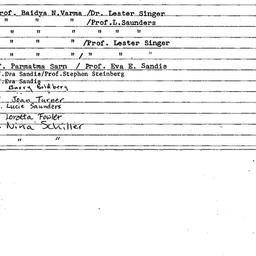 rof. Baidya N.Varma /Dr. Lester Singer
" " " /Prof.L.Saunders
" " " " " "
" " " /Prof. Lester Singer
" " " / " " "
. Parmatma Sarn / Prof. Eva E. Sandis
.Eva Sandis/Prof.Stephen Steinberg
.Eva Sandis
Barry Goldberg
Joan Turner
. Lucie Saunders
Loretta Fowler
Nina Schiller
" "